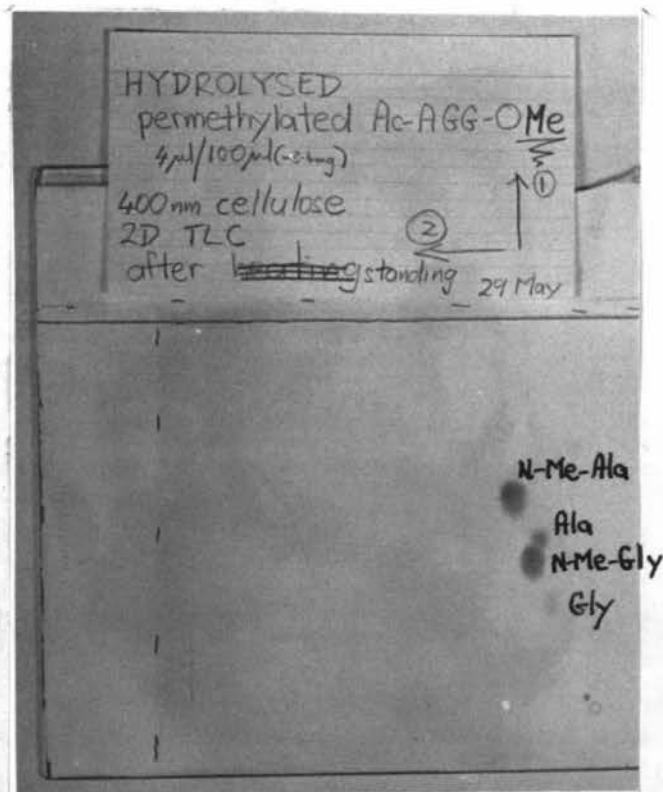 HYDROLYSED
permethylated Ac-AGG-OMe
4μl/100μl
①
400nm cellulose
②
2D TLC
after standing 29 May
N-Me-Ala
Ala
N-Me-Gly
Gly